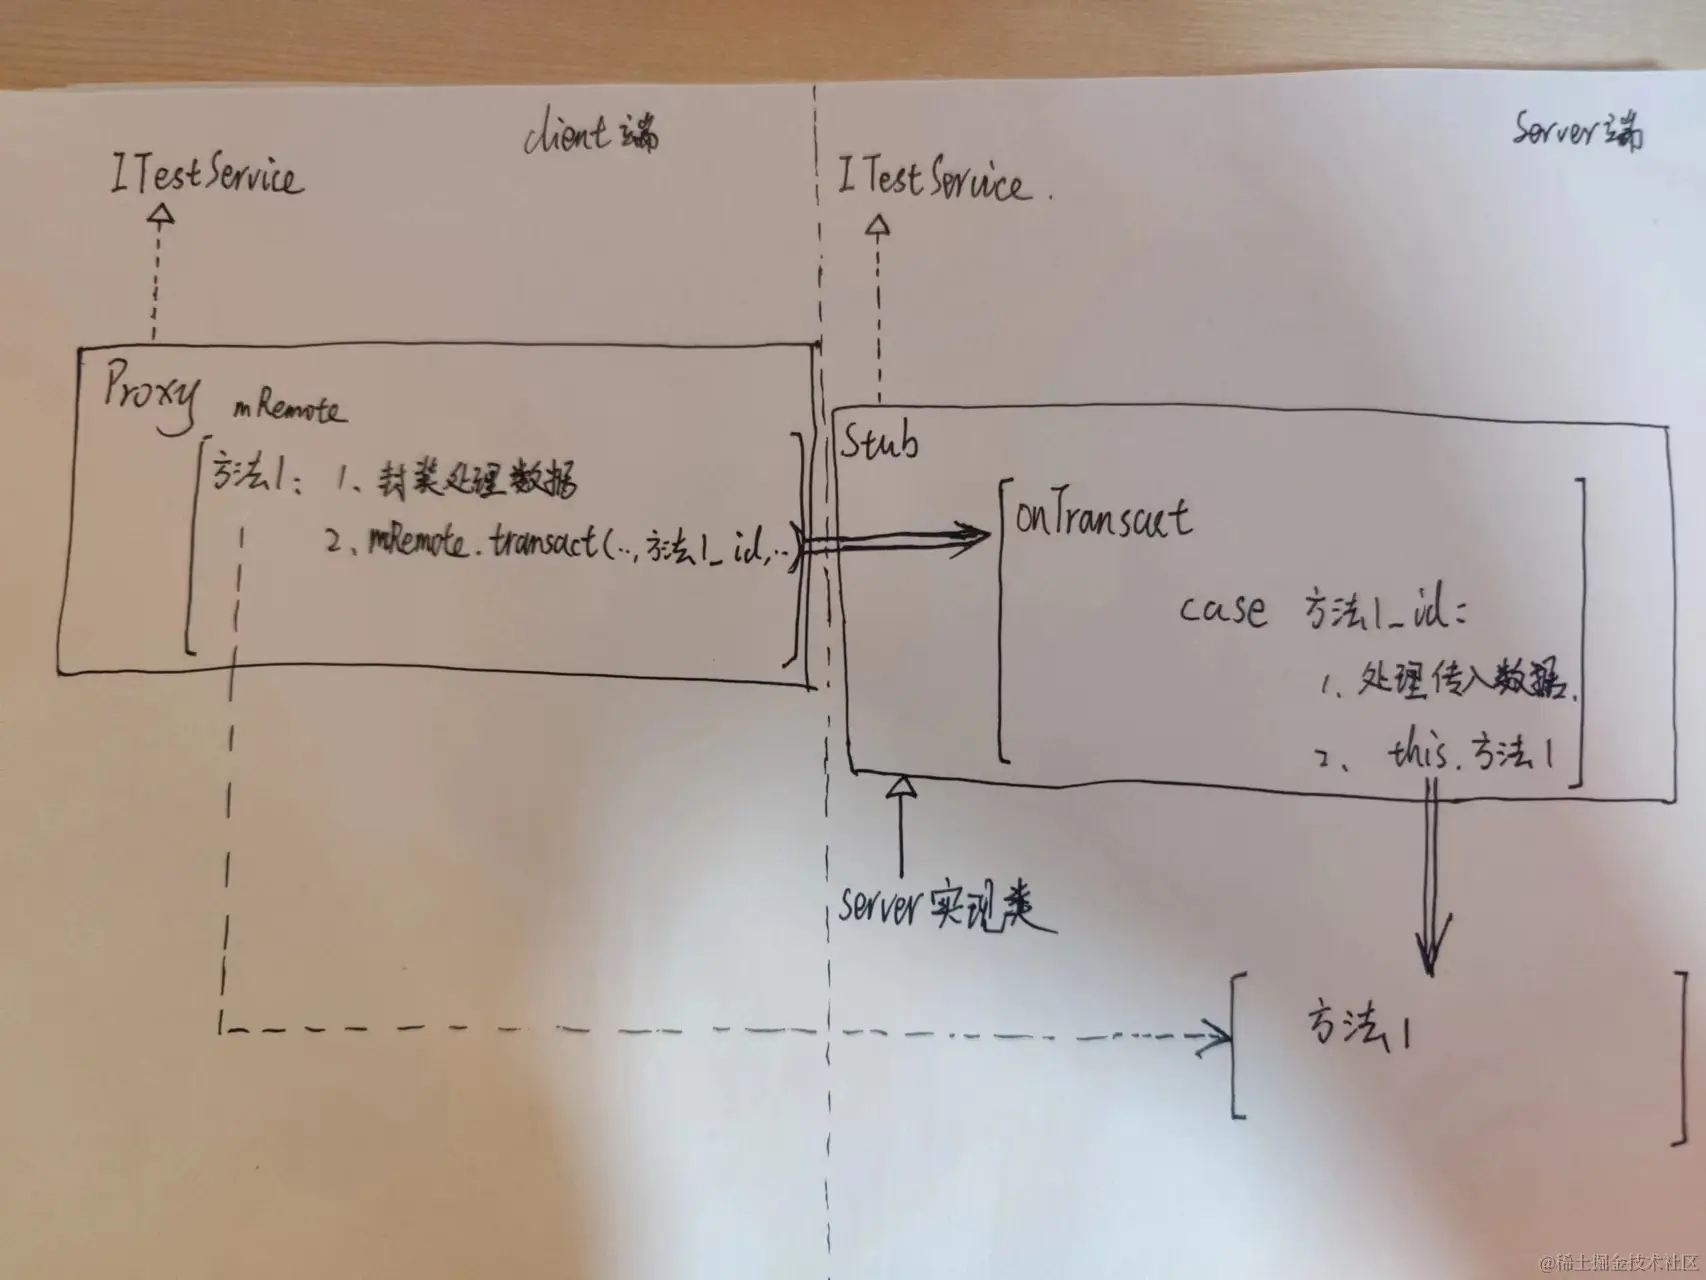 client端
ITestService
Proxy mRemote
方法1: 1、封装处理数据
2、mRemote.transact(..,方法1_id,..)
Server端
ITestService.
Stub
onTransact
case 方法1_id:
1、处理传入数据.
2、this.方法1
server实现类
方法1
@稀土掘金技术社区